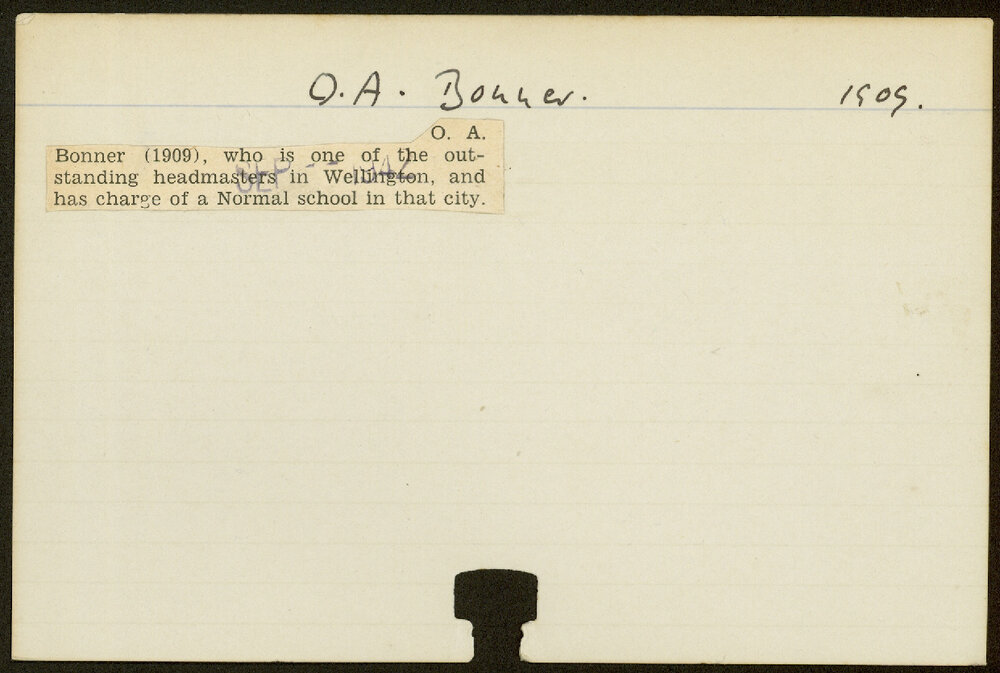 O. A. Bonner. 1909.
O. A.
Bonner (1909), who is one of the out-
standing headmasters in Wellington, and
has charge of a Normal school in that city.
SEP - 1942